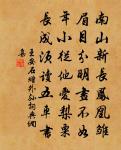 南山新長鳳凰雛
眉目分明畫不如
年小從他愛梨栗
長成須讀五車書
王安石贈外孫詩典網
集